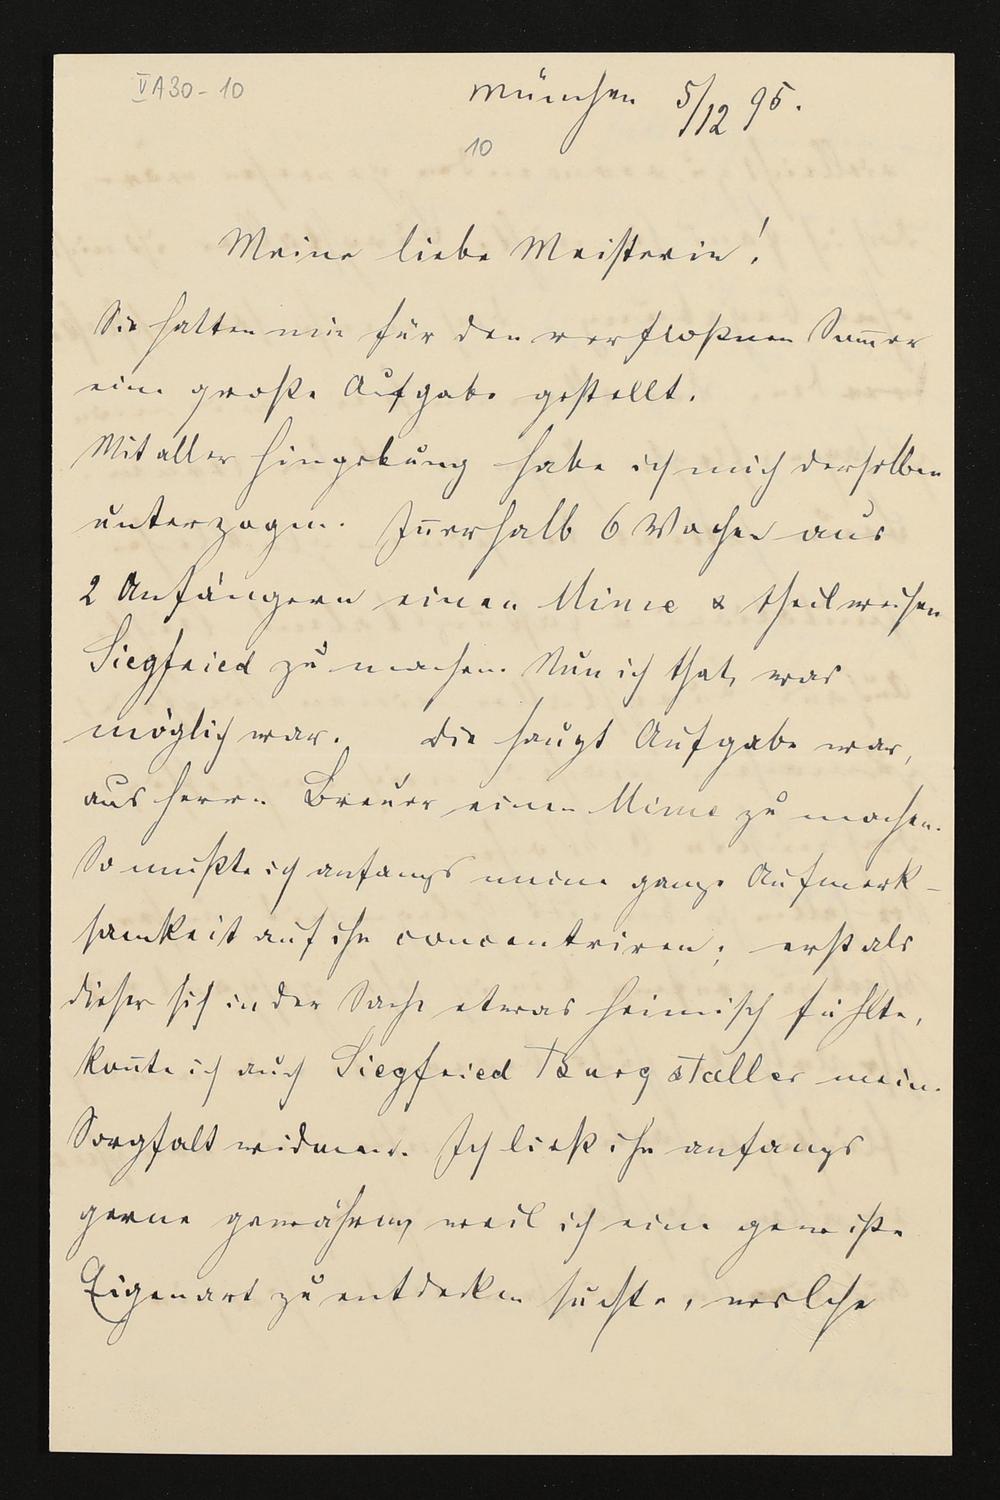 V A30-10
München 5/12 95.
10
Meine liebe Meisterin!
Sie hatten mir für den verfloßnen Som̄er
eine große Aufgabe gestellt.
Mit aller Hingebung habe ich mich derselben
unterzogen. In̄erhalb 6 Wochen aus
2 Anfängern einen Mime & theilweisen
Siegfried zu machen. Nun ich that, was
möglich war. Die Haupt Aufgabe war,
aus Herrn Breuer einen Mime zu machen.
So mußte ich anfangs meine ganze Aufmerk-
samkeit auf ihn concentriren; erst als
dieser sich in der Sache etwas heimisch fühlte,
kon̄te ich auch Siegfried Burgstaller meine
Sorgfalt widmen. Ich ließ ihn anfangs
gerne gewähren, weil ich eine gewiße
Eigenart zu entdecken suchte, welche